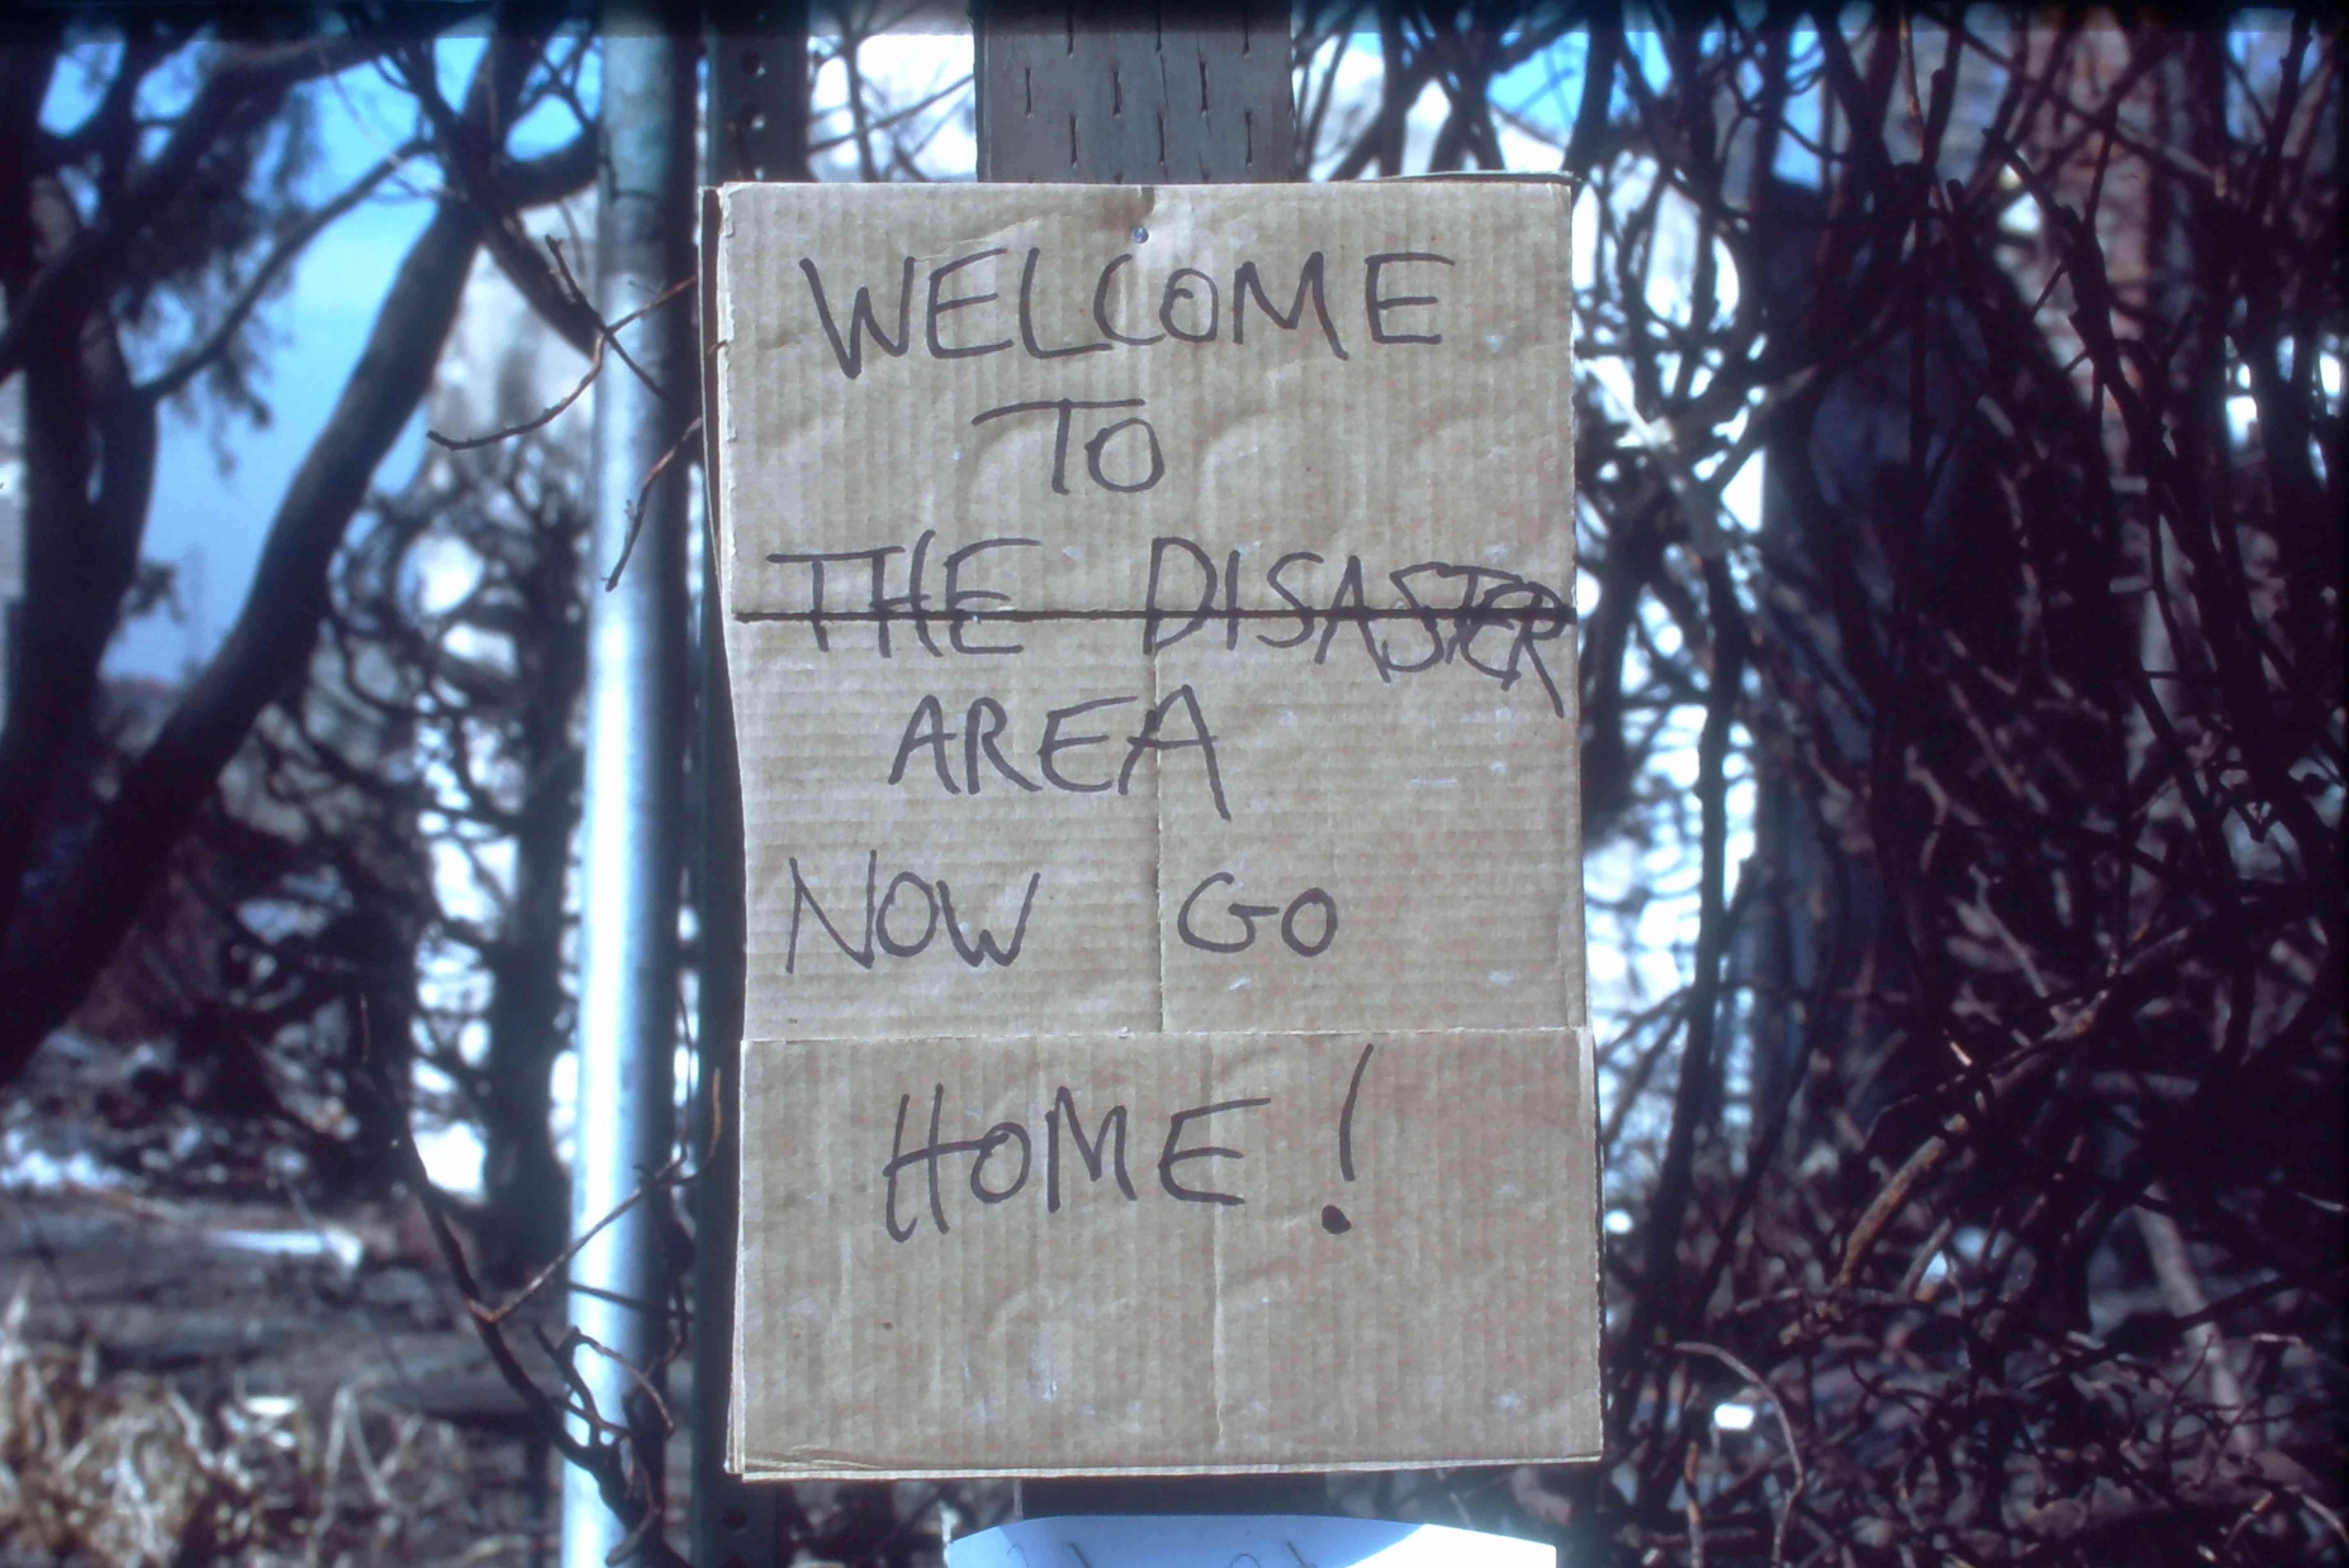 WELCOME
TO
THE DISASTER
AREA
NOW GO
HOME!